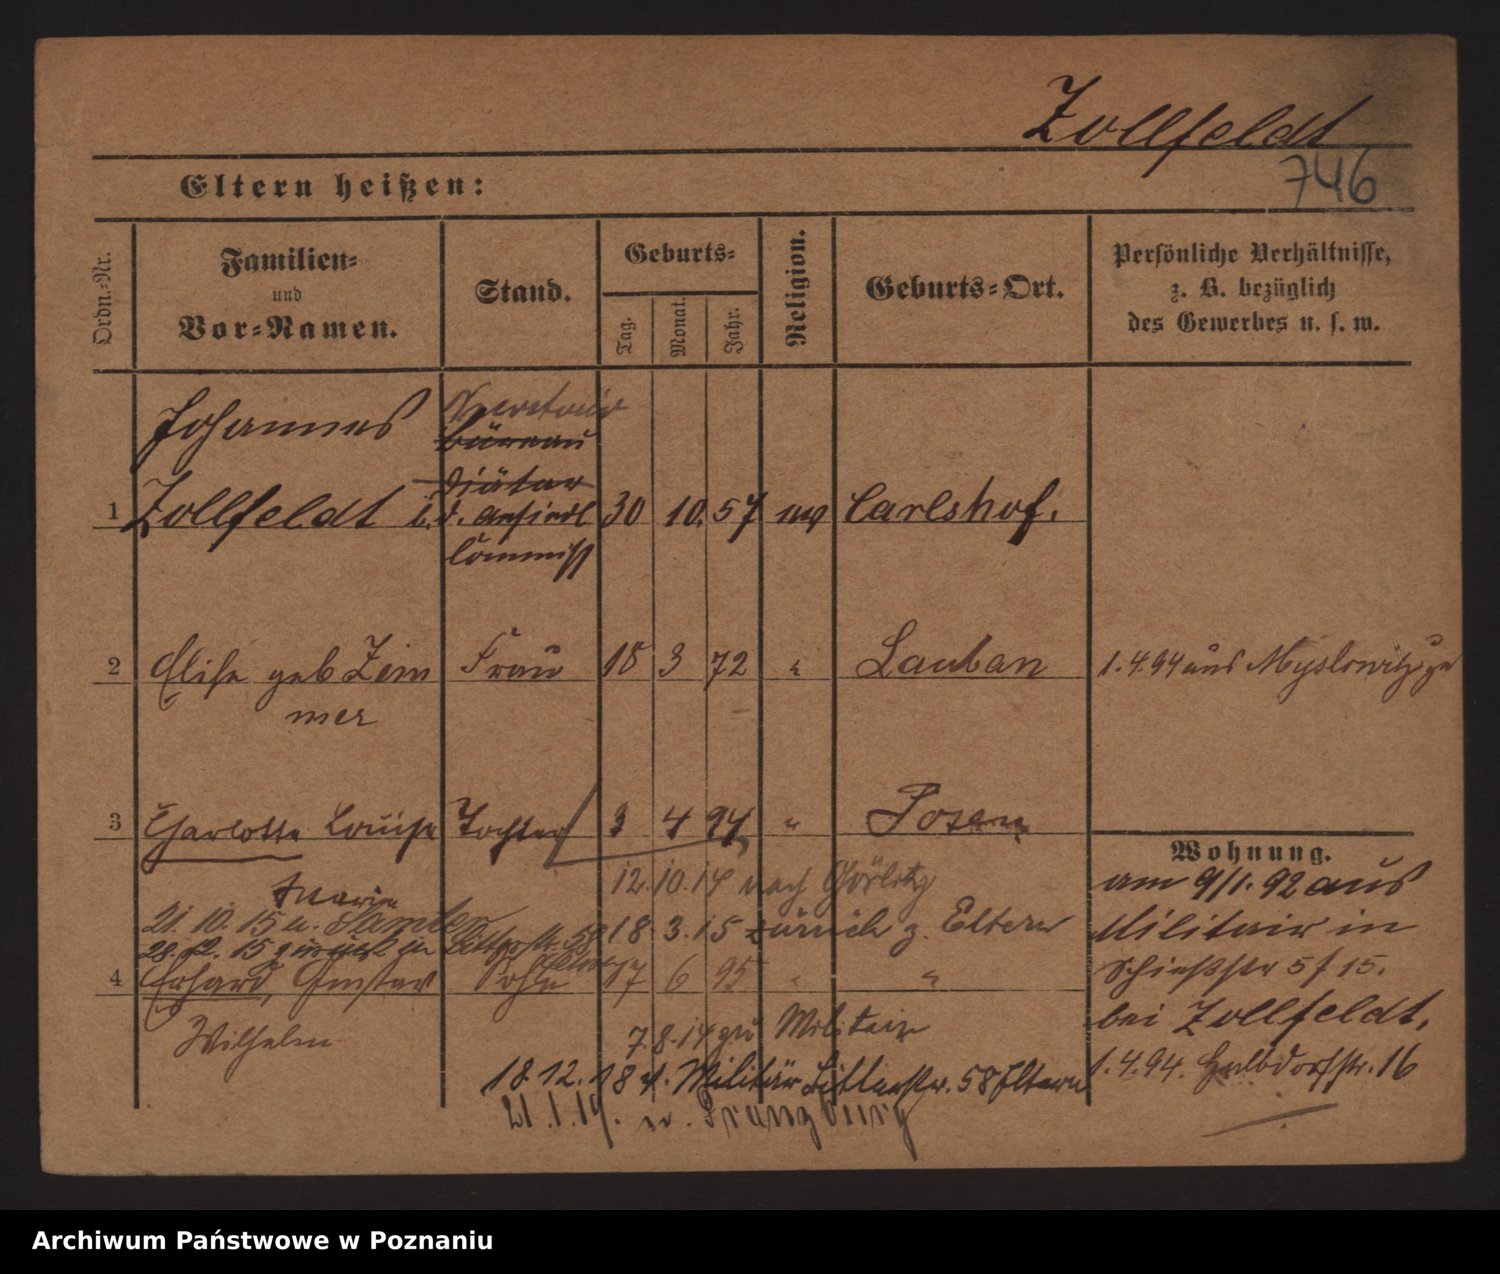 Zollfeldt
746
Eltern heißen:
Ordn.-Nr.
Familien-
und
Vor-Namen.
Stand.
Geburts-
Tag.
Monat.
Jahr.
Religion.
Geburts-Ort.
Persönliche Verhältnisse,
z. B. bezüglich
des Gewerbes u. s. w.
Johannes
Secretair
Büreau
Diätar
1 Zollfeldt i. d. Ansiedl. 30 10. 57 ev Carlshof.
Commiss
2 Elise geb Zim Frau 18 3 72 " Lauban 1.4.94 aus Myslowitz zu
mer
3 Charlotte Louise Tochter 3 4 94 " Posen
Marie
12.10.14 nach Görlitz
21. 10. 15 n. Samter
18.3.15 zurück z. Eltern
28.12. 15 zurück in Ritterstr. 58
Eltern
4 Erhard, Gustav Sohn 17 6 95 " "
Wilhelm
7.8.14 zu Militair
18.12.18 v. Militär Ritterstr. 58 Eltern
21.1.19. n.
Wohnung.
am 9/1. 92 aus
Militair in
Schießstr 5/15.
bei Zollfeldt.
1.4.94. Halbdorfstr. 16
Archiwum Państwowe w Poznaniu